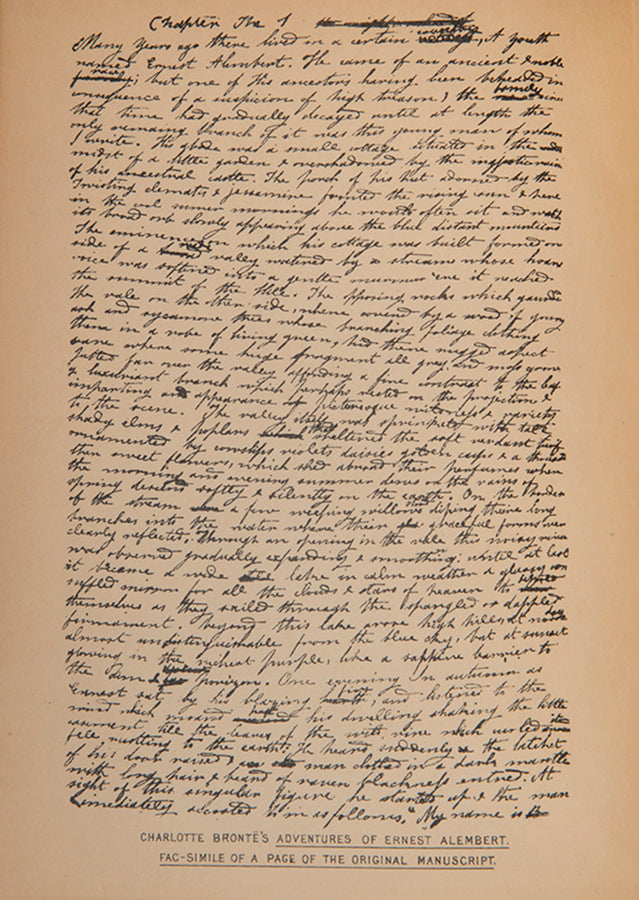 Chapter The 1
Many years ago there lived in a certain country, A youth
named Ernest Alembert. He came of an ancient & noble
race; but one of his ancestors having been beheaded in
consequence of a suspicion of high treason; the family since
that time had gradually decayed until at length the
only remaining branch of it was this young man of whom
I write. His abode was a small cottage situated in the
midst of a little garden & overshadowed by the majestic ruins
of his ancestral castle. The porch of his hut adorned by the
Twisting clematis & jessamine fronted the rising sun & here
in the cool summer mornings he would often sit and watch
its broad orb slowly appearing above the blue distant mountains
The eminence on which his cottage was built formed one
side of a valley watered by a stream whose hoarse
voice was softened into a gentle murmur 'ere it reached
the summit of the Hill. The opposing rocks which guarded
the vale on the other side, where covered by a wood of young
ash and sycamore trees whose branching foliage clothing
them in a robe of living green, hid there rugged aspect
save where some huge fragment all grey and moss grown
Jutted far over the valley affording a fine contrast to the leaf
of luxuriant branch which perhaps rested on the projection &
imparting an appearance of picturesque wildness & variety
to the scene. The valley itself was sprinkled with tall
shady elms & poplars that sheltered the soft verdant turf
ornamented by cowslips violets daisies golden cups & a thousand
other sweet flowers, which shed abroad their perfumes when
the morning and evening summer dews or the rains of
spring descend softly & silently on the earth. On the border
of the stream a few weeping willows diping theire long
branches into the water where their graceful forms were
clearly reflected. Through an opening in the vale this noisy river
was observed gradually expanding & smoothing; until at last
it became a wide lake in calm weather a glassy un
ruffled mirror for all the clouds & stars of heaven to
themselves as they sailed through the spangled or dappled
firmament. Beyond this lake arose high hills, at noon day
almost undistinguishable from the blue sky, but at sunset
glowing in the richest purple, like a sapphire barrier to
the dim horizon. One evening in autumn as
Ernest sat by his blazing fire, and listened to the
wind which moan'd his dwelling shaking the little
casement till the leaves of the wild vine which curled
fell rustling to the earth; He heard suddenly the latchet
of his door raised, man clothed in a dark mantle
with long hair & beard of raven blackness entred. At
sight of this singular figure he started up & the man
immediately accosted him as follows, "My name is
CHARLOTTE BRONTË'S ADVENTURES OF ERNEST ALEMBERT.
FAC-SIMILE OF A PAGE OF THE ORIGINAL MANUSCRIPT.